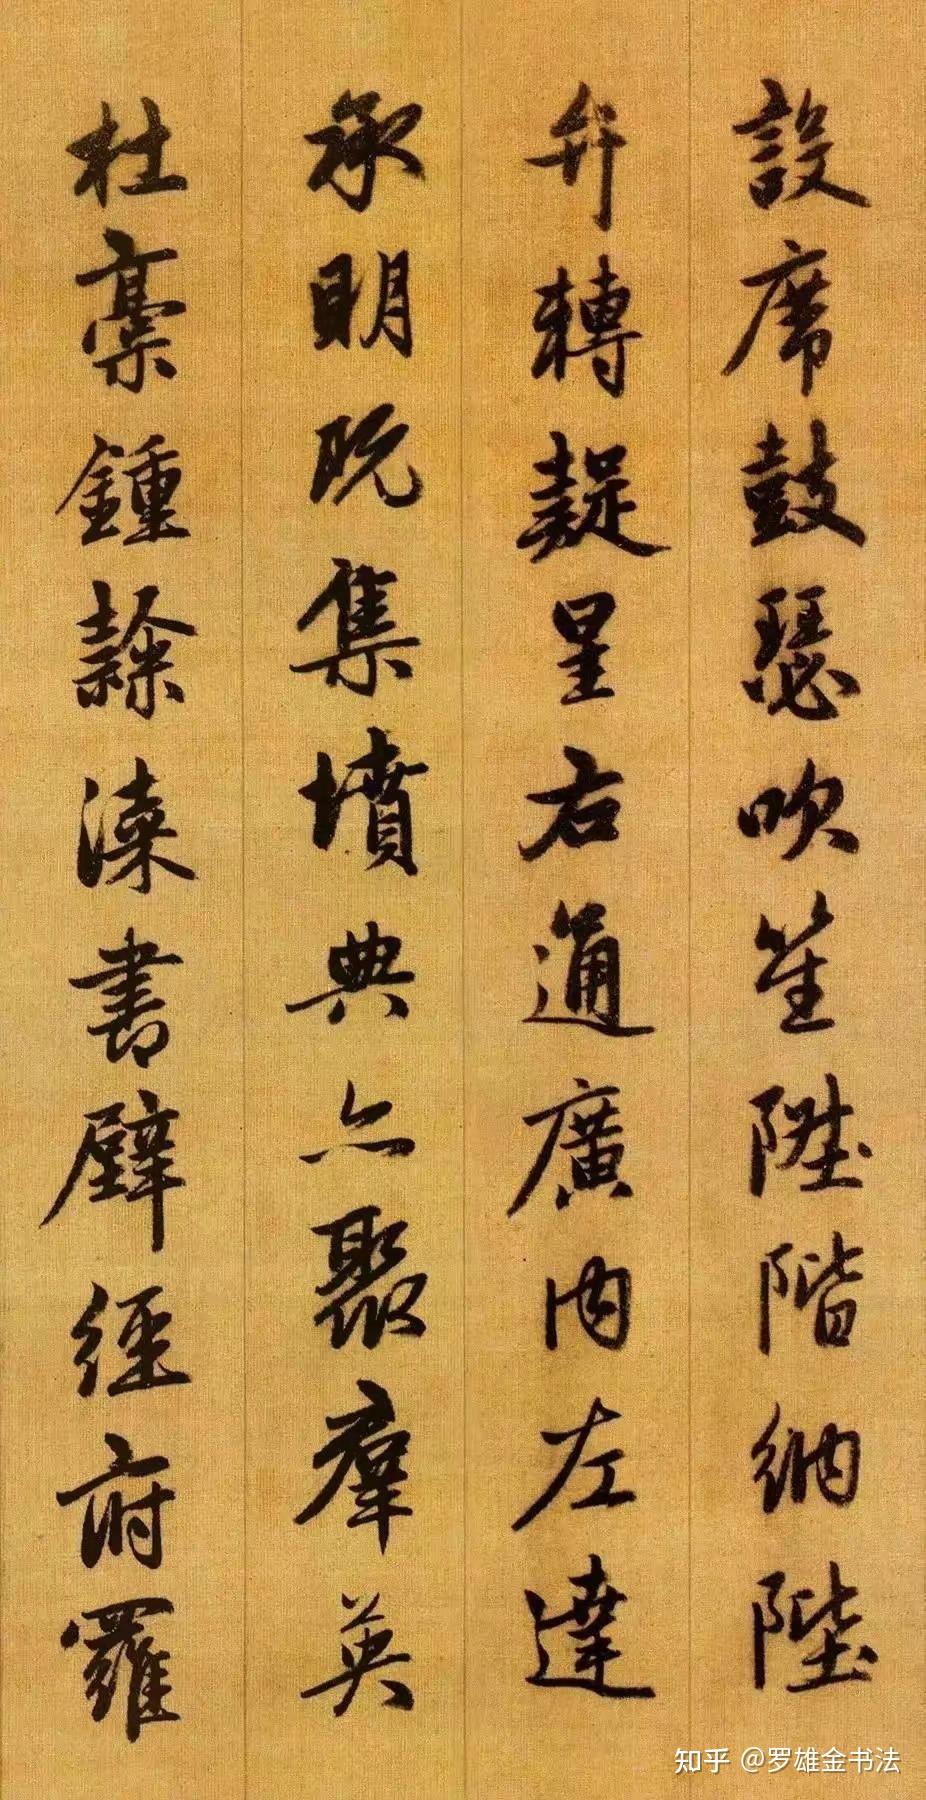 設席鼓瑟吹笙陞階納陛
弁轉疑星右通廣內左達
承明既集墳典亦聚羣英
杜稾鍾隸漆書壁經府羅
知乎 @罗雄金书法